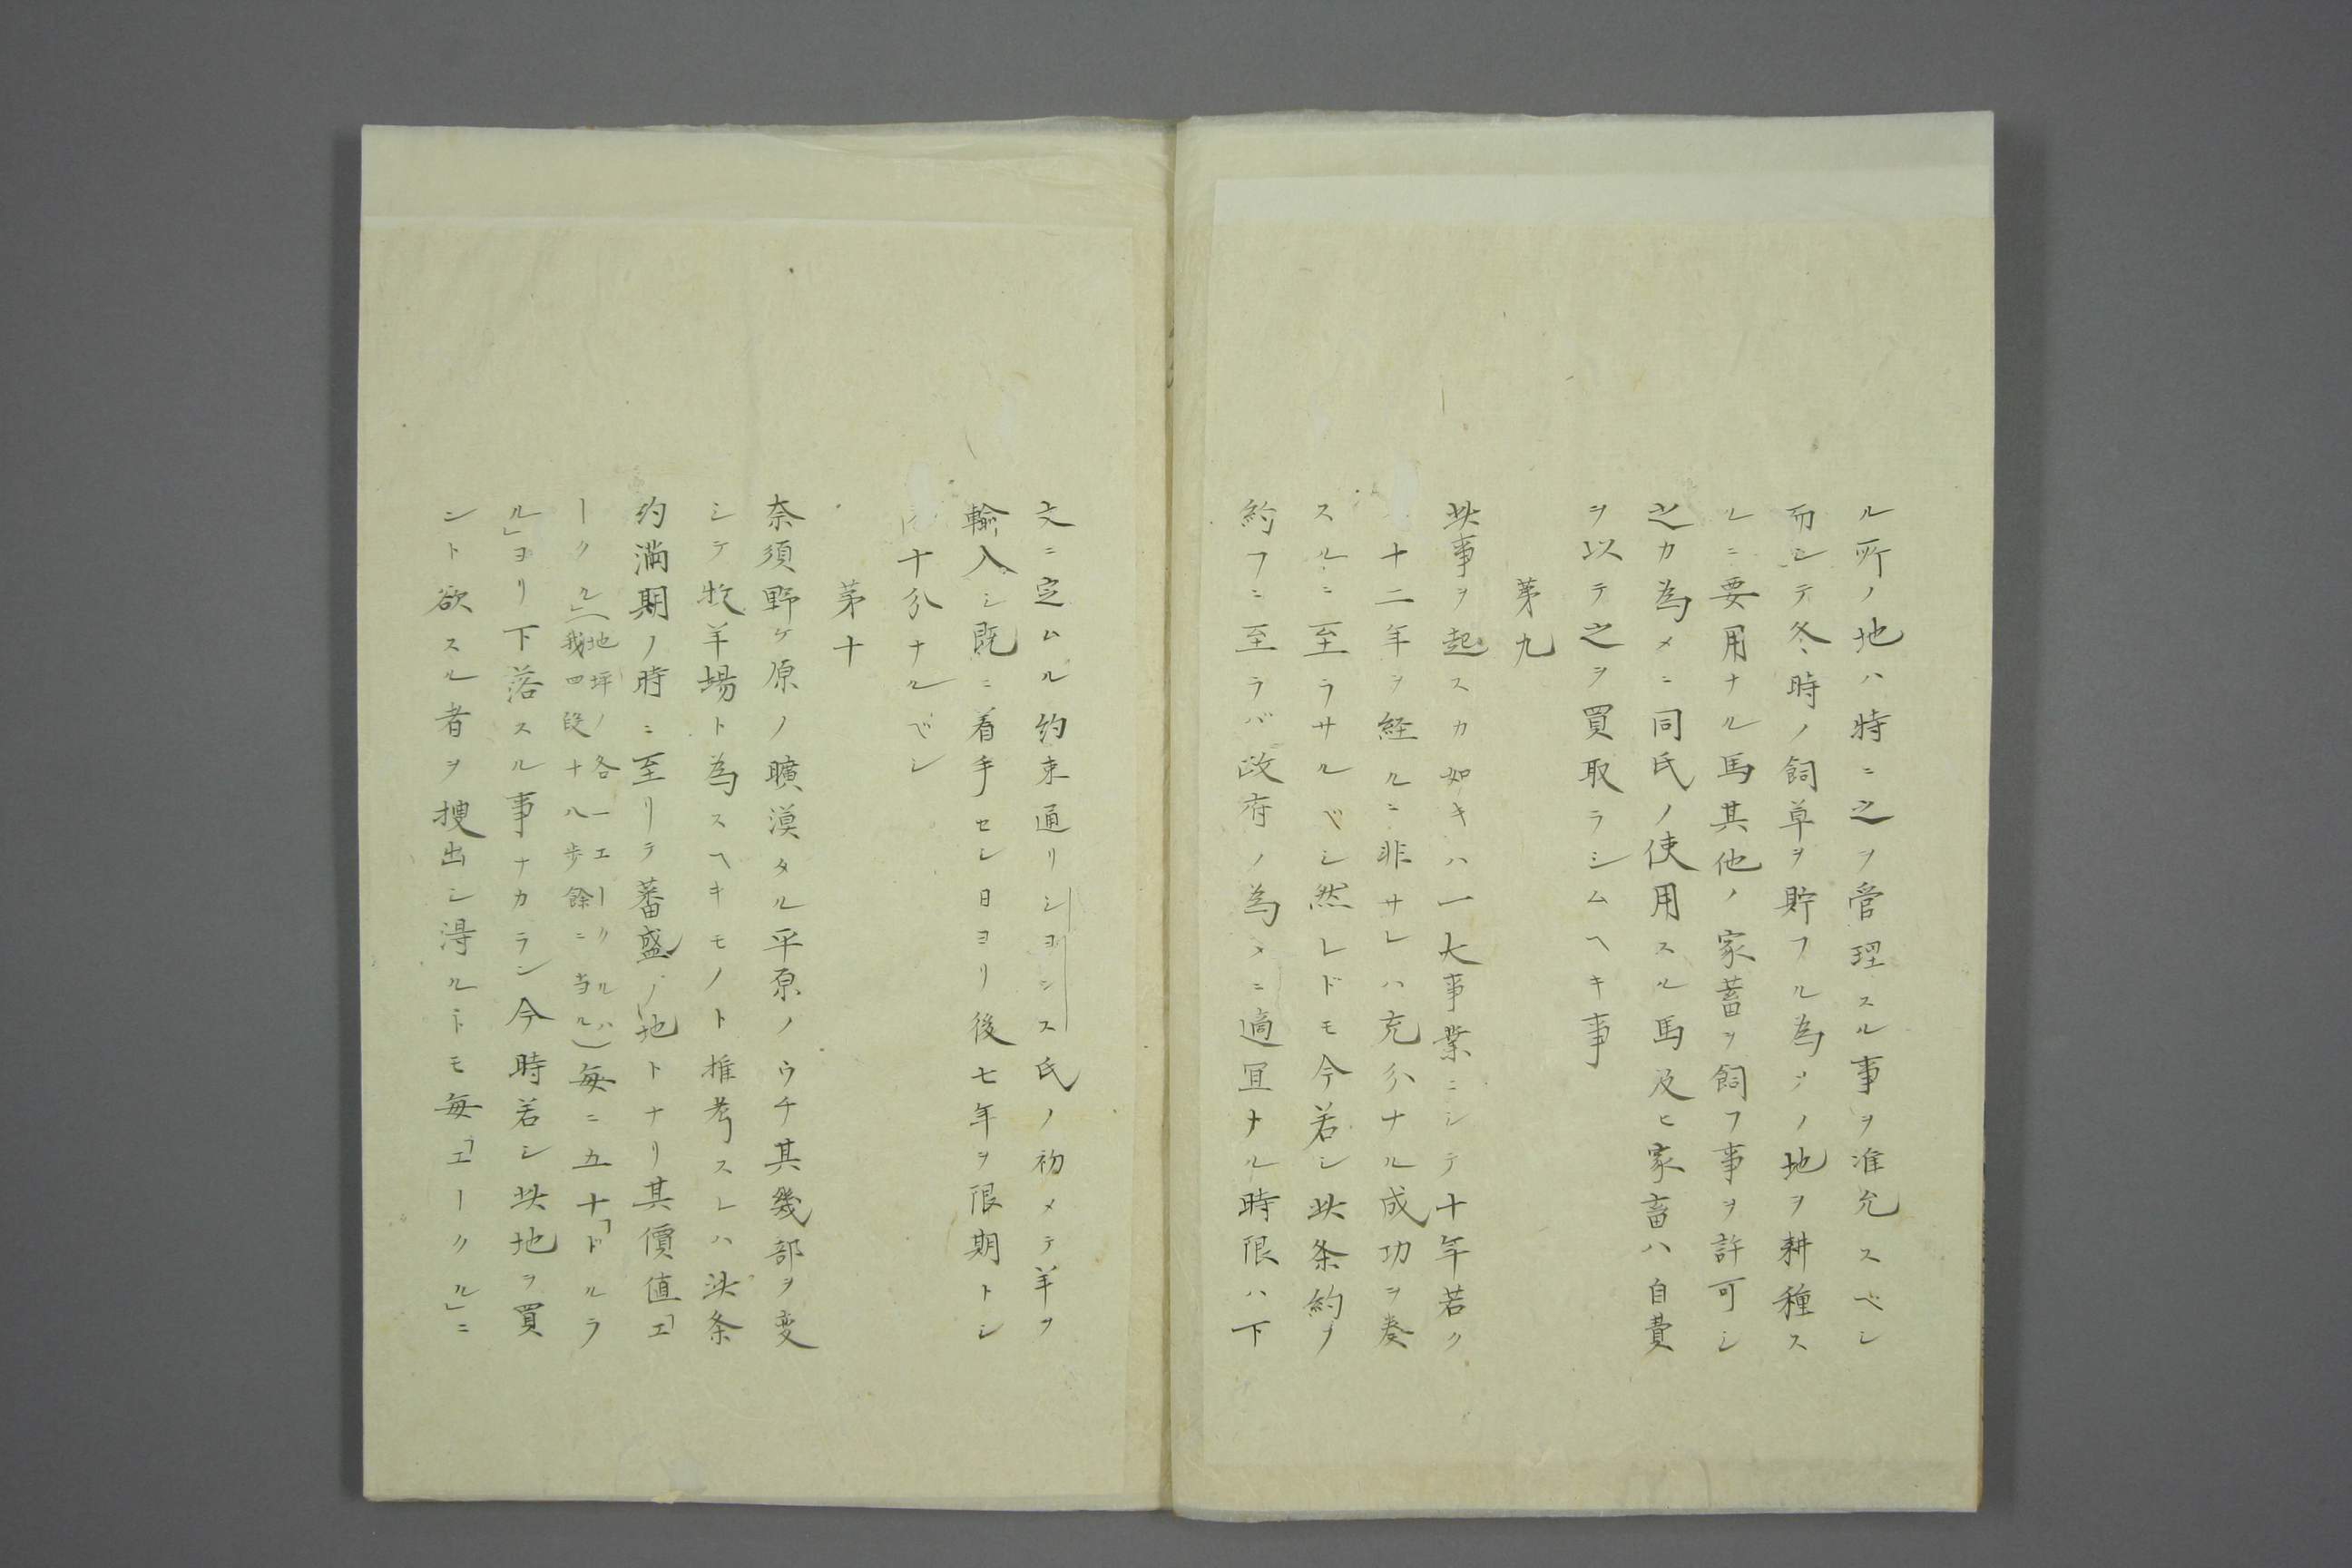 ル所ノ地ハ特ニ之ヲ管理スル事ヲ准允スベシ
而シテ冬時ノ飼草ヲ貯フル為メノ地ヲ耕種ス
ルニ要用ナル馬其他ノ家蓄ヲ飼フ事ヲ許可シ
之カ為メニ同氏ノ使用スル馬及ヒ家畜ハ自費
ヲ以テ之ヲ買取ラシムヘキ事
第九
此事ヲ起スカ如キハ一大事業ニシテ十年若ク
十二年ヲ経ルニ非サレハ充分ナル成功ヲ奏
スルニ至ラサルベシ然レドモ今若シ此条約ヲ
約フニ至ラバ政府ノ為メニ適宜ナル時限ハ下
文ニ定ムル約束通リジヨンス氏ノ初メテ羊ヲ
輸入シ既ニ着手セシ日ヨリ後七年ヲ限期トシ
十分ナルベシ
第十
奈須野ケ原ノ曠漠タル平原ノウチ其幾部ヲ変
シテ牧羊場ト為スヘキモノト推考スレハ此条
約満期ノ時ニ至リテ蕃盛ノ地トナリ其價値「エ
ークル」(地坪ノ各一エークルハ我四段十八歩餘ニ当ル)毎ニ五十「ドルラ
ル」ヨリ下落スル事ナカラン今時若シ此地ヲ買
ント欲スル者ヲ捜出シ淂ルトモ毎「エークル」ニ